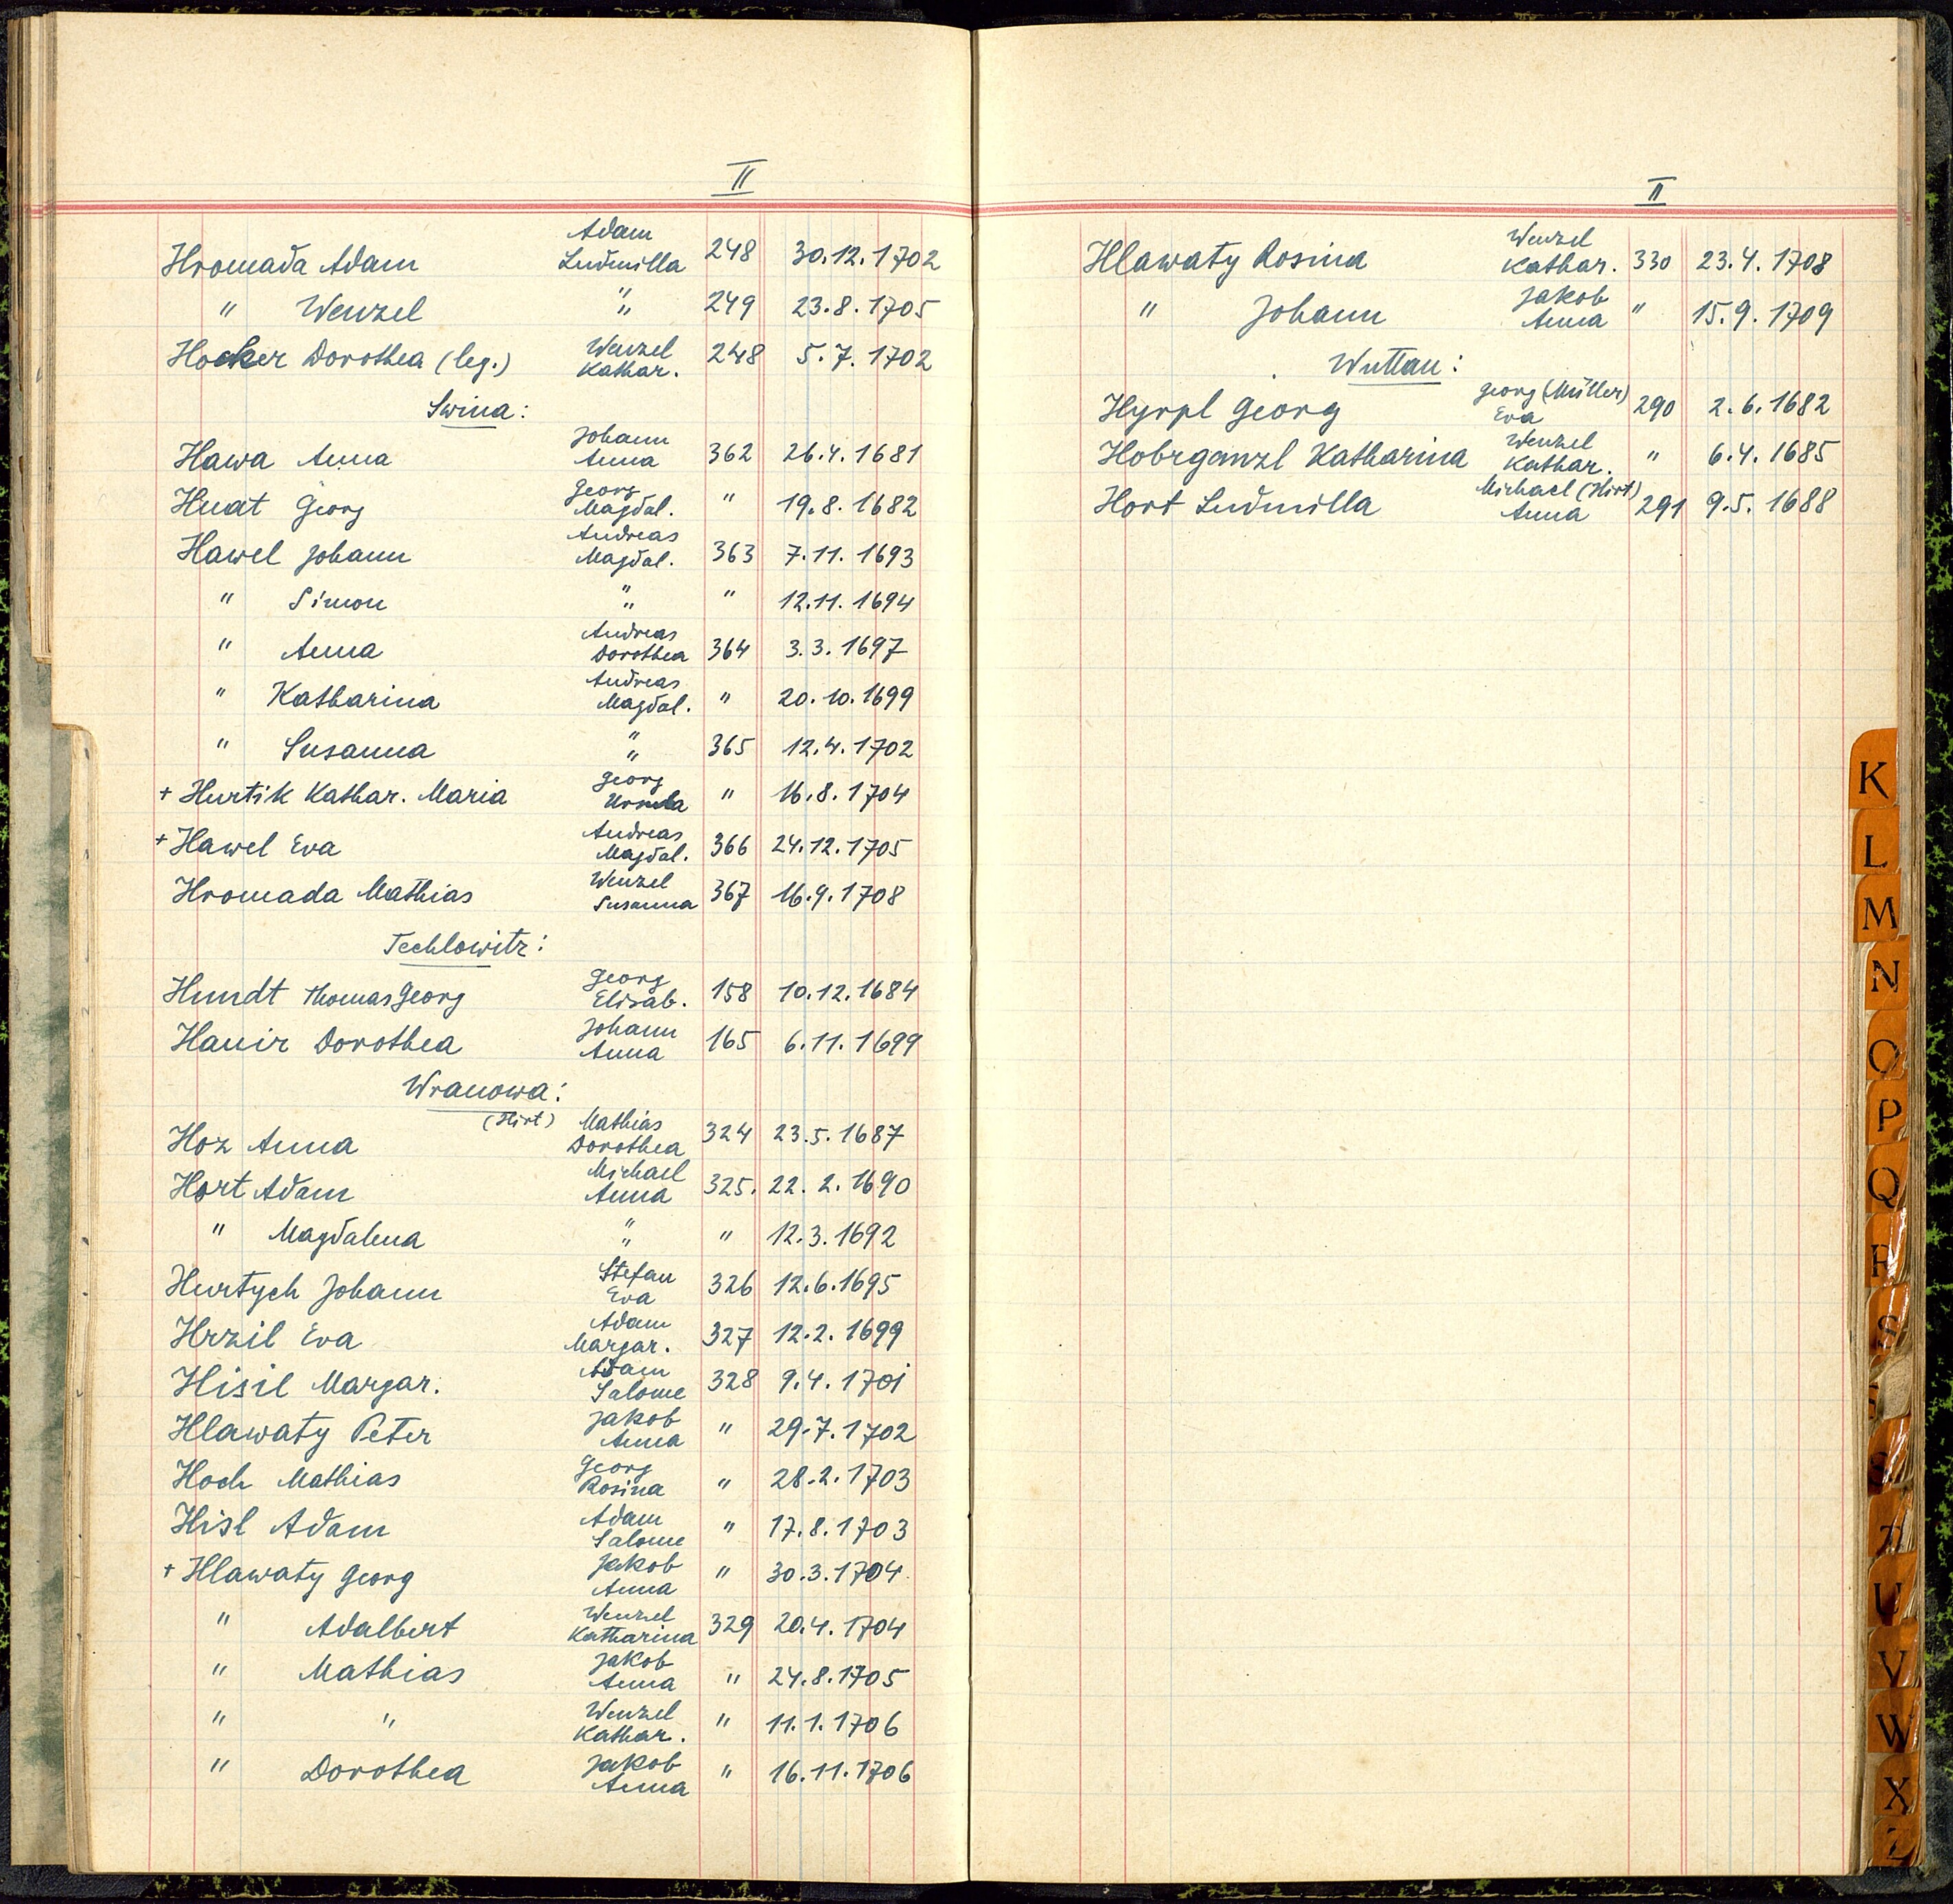 II
Adam
Hromada Adam Ludmilla 248 30.12.1702
" Wenzel " " 249 23.8.1705
Hocker Dorothea (leg.) Wenzel Kathar. 248 5.7.1702
Swina:
Hawa Anna Johann Anna 362 26.4.1681
Huat Georg Georg Magdal. " 19.8.1682
Hawel Johann Andreas Magdal. 363 7.11.1693
" Simon " " " 12.11.1694
" Anna Andreas Dorothea 364 3.3.1697
" Katharina Andreas Magdal. " 20.10.1699
" Susanna " " 365 12.4.1702
+ Hurtik Kathar. Maria Georg Ursula " 16.8.1704
+ Hawel Eva Andreas Magdal. 366 24.12.1705
Hromada Mathias Wenzel Susanna 367 16.9.1708
Techlowitz:
Hundt Thomas Georg Georg Elisab. 158 10.12.1684
Hauir Dorothea Johann Anna 165 6.11.1699
Wranowa:
Hoz Anna (Hirt) Mathias Dorothea 324 23.5.1687
Hort Adam Michael Anna 325. 22.2.1690
" Magdalena " " " 12.3.1692
Hurtych Johann Stefan Eva 326 12.6.1695
Hrzil Eva Adam Margar. 327 12.2.1699
Hisil Margar. Adam Salome 328 9.4.1701
Hlawaty Peter Jakob Anna " 29.7.1702
Hoch Mathias Georg Rosina " 28.2.1703
Hisl Adam Adam Salome " 17.8.1703
+ Hlawaty Georg Jakob Anna " 30.3.1704
" Adalbert Wenzel Katharina 329 20.4.1704
" Mathias Jakob Anna " 24.8.1705
" " Wenzel Kathar. " 11.1.1706
" Dorothea Jakob Anna " 16.11.1706
II
Hlawaty Rosina Wenzel Kathar. 330 23.4.1708
" Johann Jakob Anna " 15.9.1709
Wuttau:
Hyrpl Georg Georg (Müller) Eva 290 2.6.1682
Hobrganzl Katharina Wenzel Kathar. " 6.4.1685
Hort Ludmilla Michael (Hirt) Anna 291 9.5.1688
K
L
M
N
O
P
Q
R
S
U
V
W
X
Z